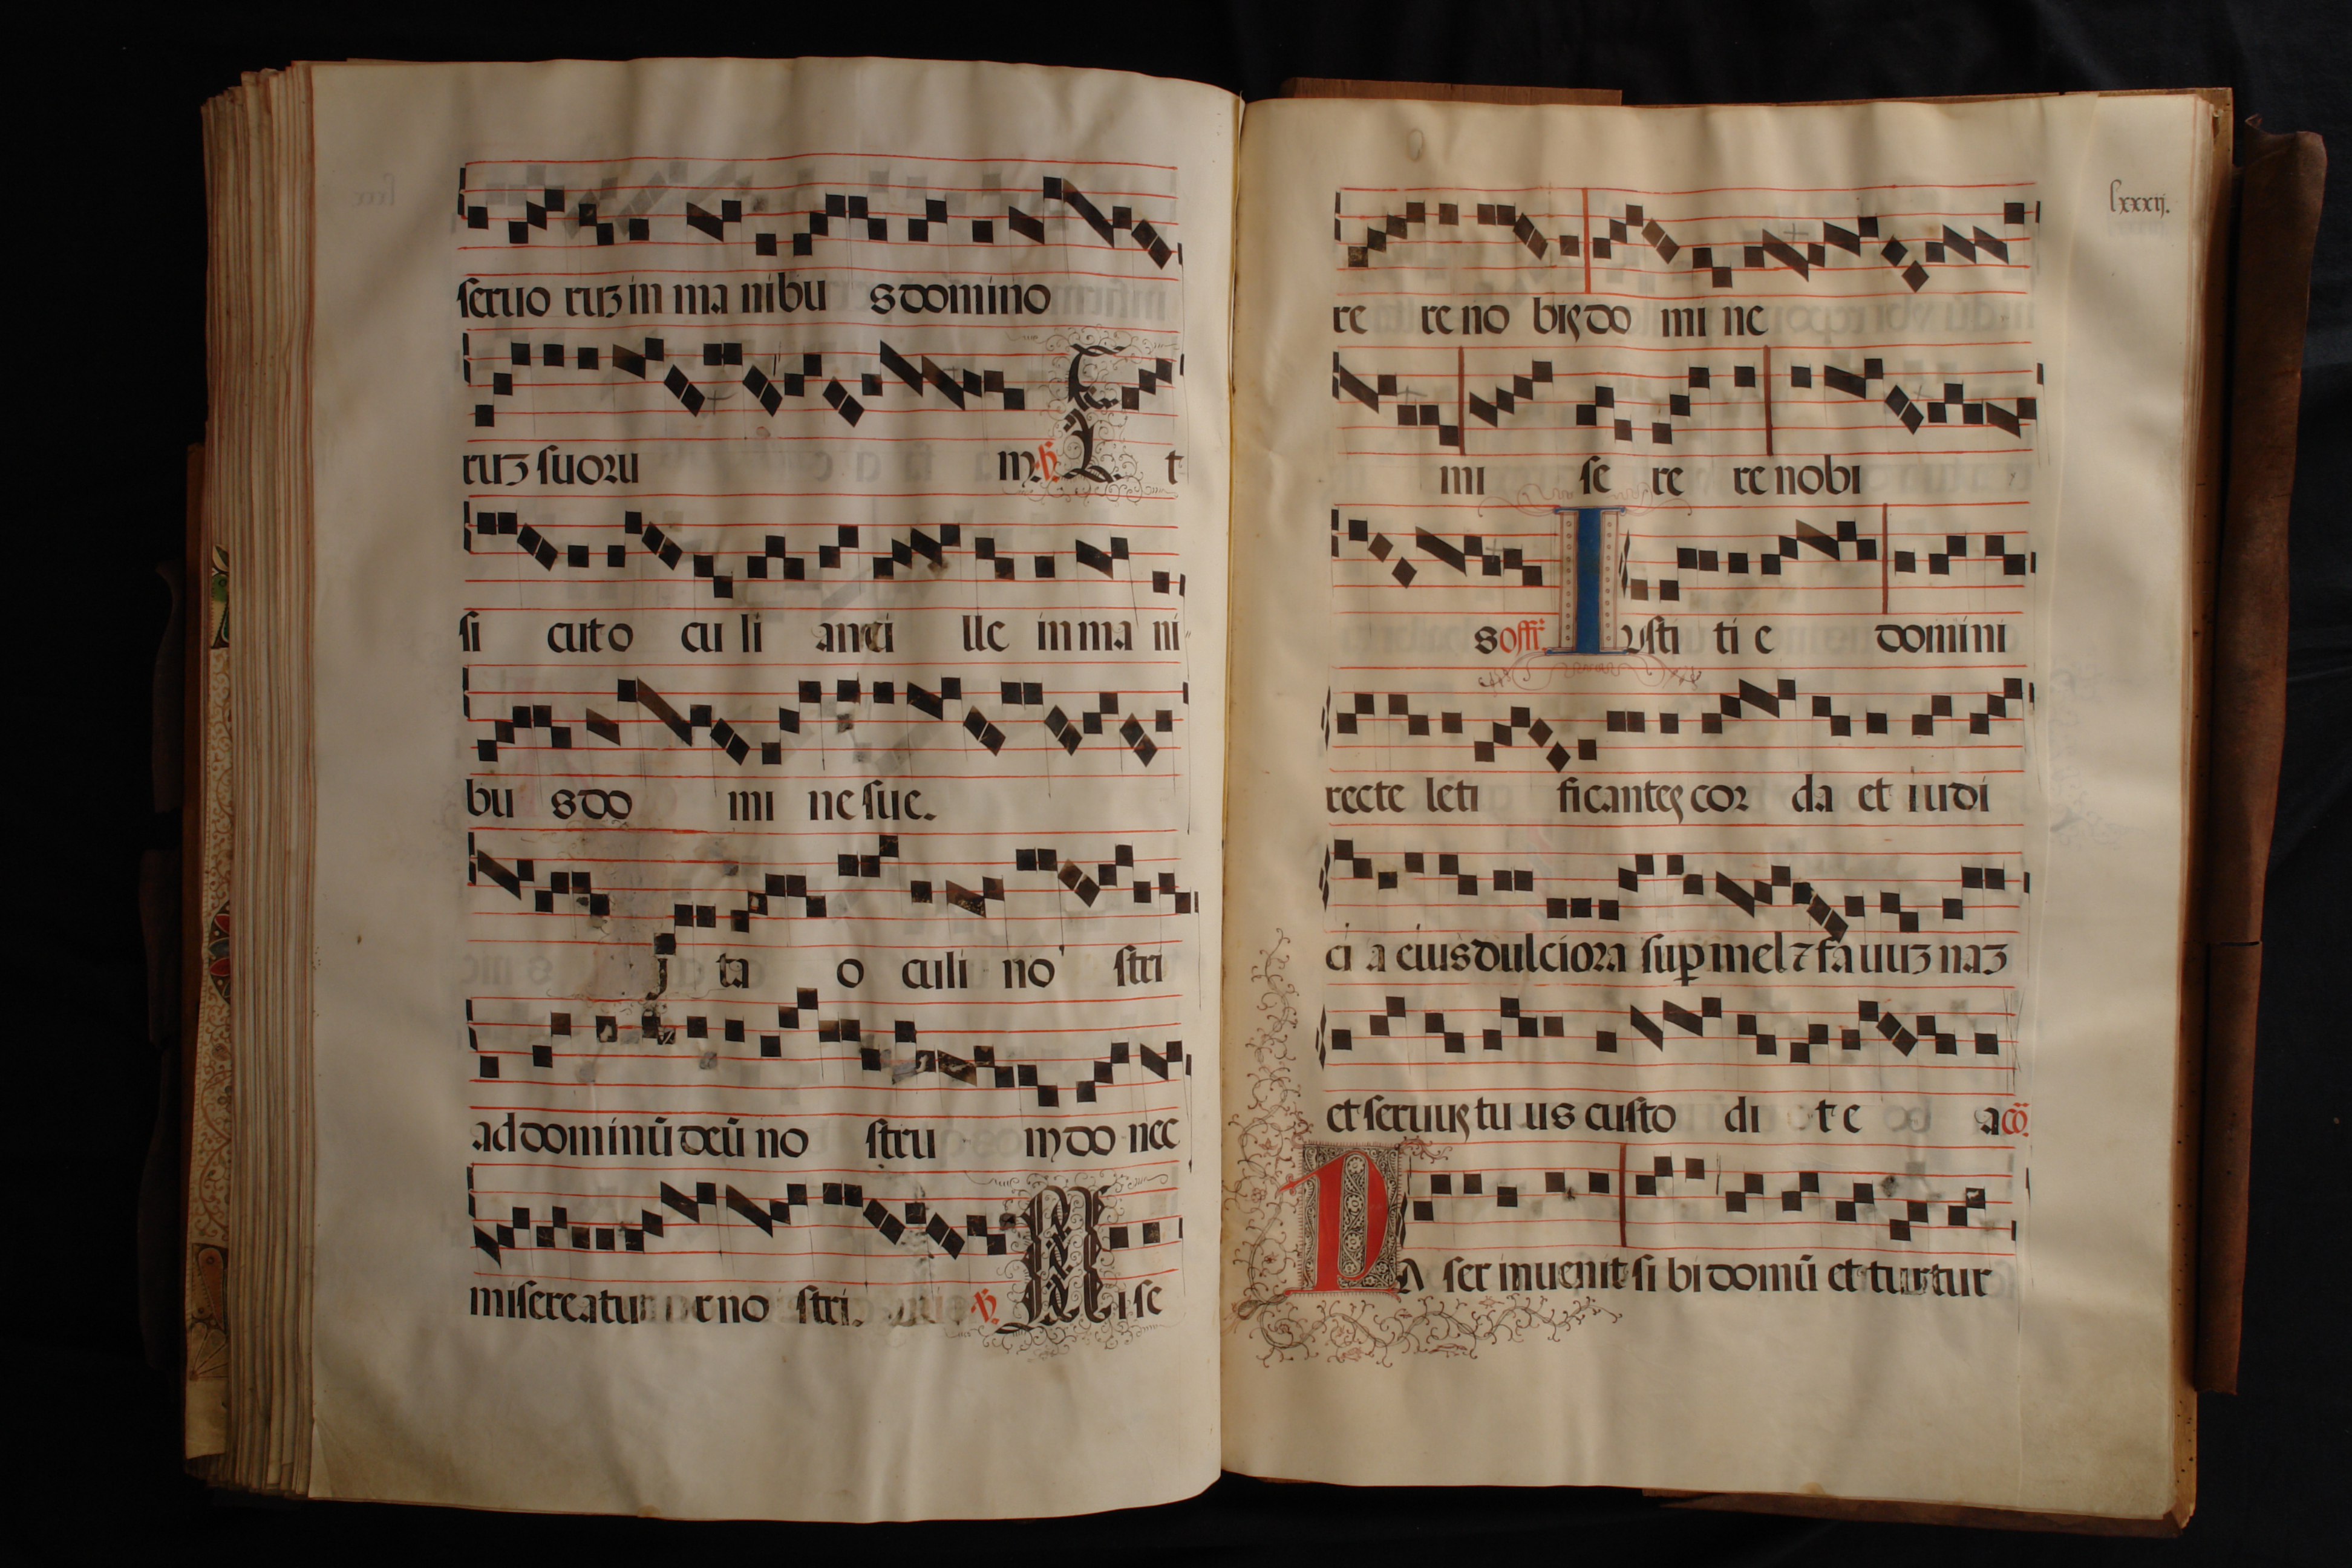 seruo ruz in ma nibu s domino
ruz suoru m. ℣. Et
si cut o cu li anci lle in ma ni
bu s do mi ne sue.
Ita o culi no stri
ad dominū deū no stru m do nec
misereatur no stri. ℣. Mise
lxxxij.
re re no bis do mi ne
mi se re re nobi
s offr̄. Iusti ti e domini
recte leti ficantes cor da et iudi
ci a eius dulciora sup mel ⁊ fauuz naz
et seruus tu us custo di t e a cō.
PA ser inuenit si bi domū et turtur